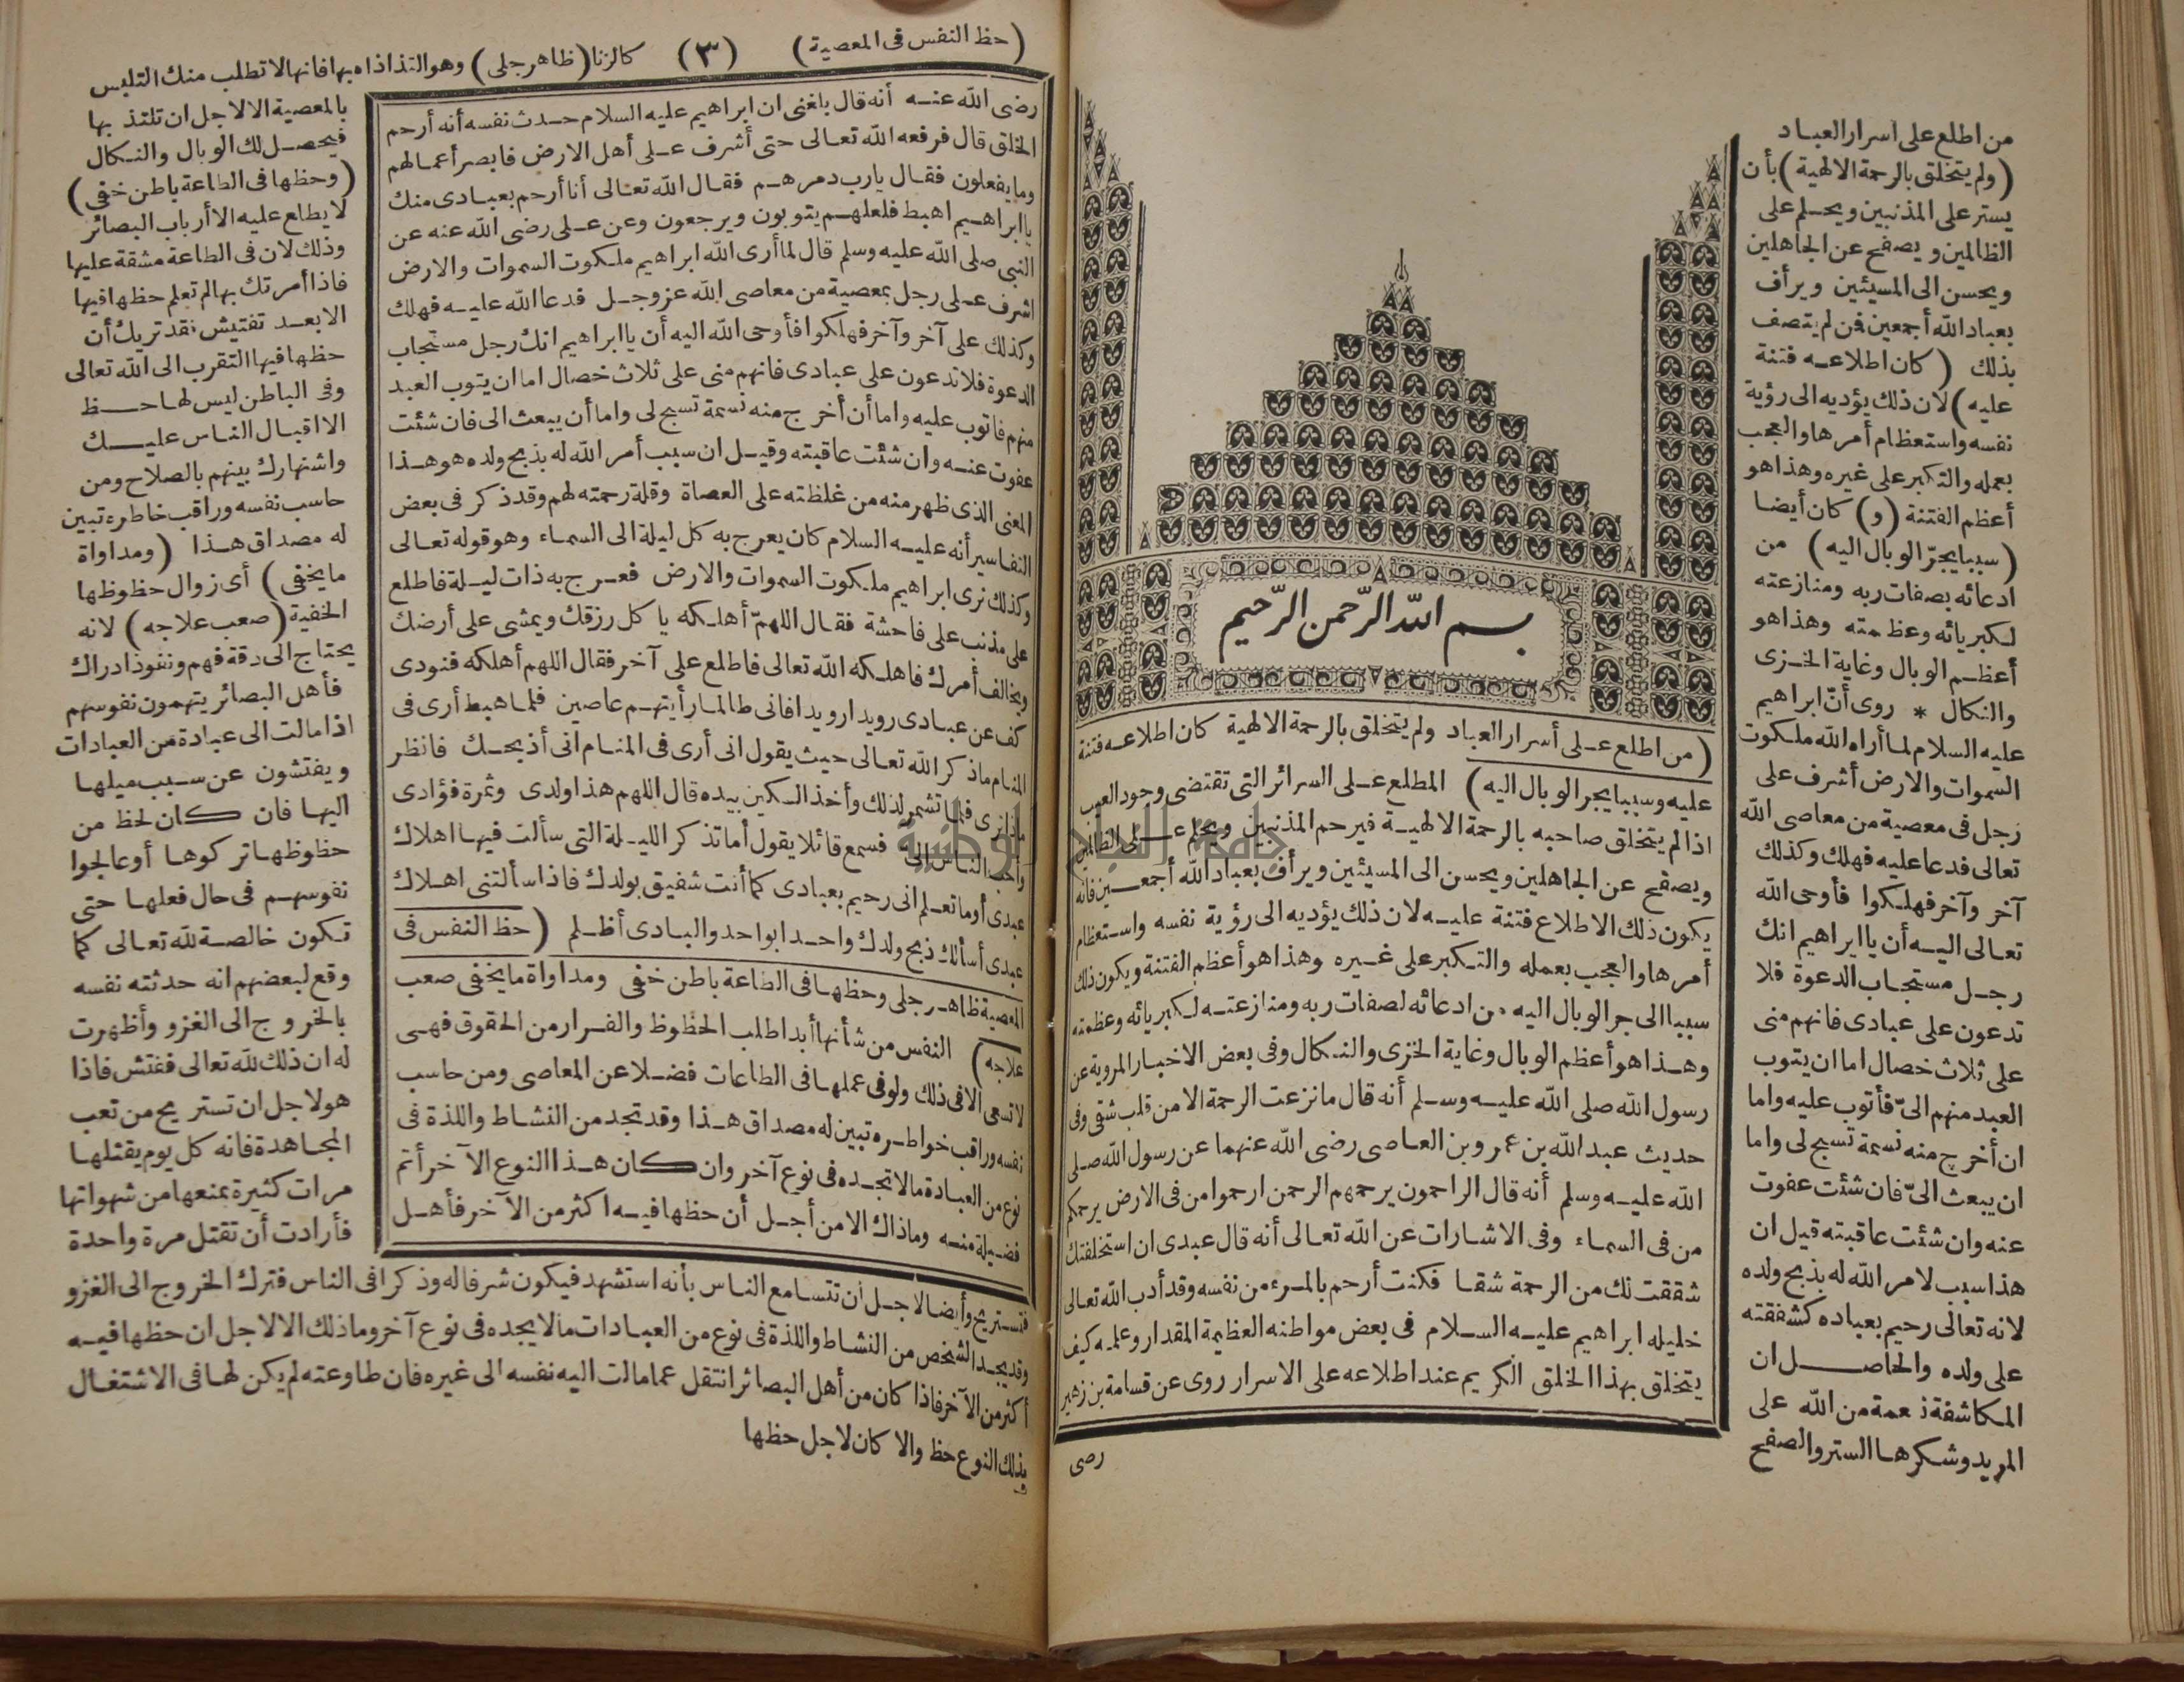 من اطلع على أسرار العباد
(ولم يتخلق بالرحمة الالهية) بأن
يستر على المذنبين ويحلم على
الظالمين ويصفح عن الجاهلين
ويحسن الى المسيئين ويرأف
بعباد الله أجمعين فن لم يتصف
بذلك (كان اطلاعه فتنة
عليه) لان ذلك يؤديه الى رؤية
نفسه واستعظام أمرها والعجب
بعمله والتكبر على غيره وهذا هو
أعظم الفتنة (و) كان أيضا
(سببا يجرّ الوبال اليه) من
ادعائه بصفات ربه ومنازعته
لكبريائه وعظمته وهذا هو
أعظم الوبال وغاية الخزى
والنكال * روى أنّ ابراهيم
عليه السلام لما أراه الله ملكوت
السموات والارض أشرف على
رجل فى معصية من معاصى الله
تعالى فدعا عليه فهلك وكذلك
آخر وآخر فهلكوا فأوحى الله
تعالى اليه أن يا ابراهيم انك
رجل مستجاب الدعوة فلا
تدعون على عبادى فانهم منى
على ثلاث خصال اما ان يتوب
العبد منهم الىّ فأتوب عليه واما
ان أخرج منه نسمة تسبح لى واما
ان يبعث الىّ فان شئت عفوت
عنه وان شئت عاقبته قيل ان
هذا سبب لامر الله له بذبح ولده
لانه تعالى رحيم بعباده كشفقته
على ولده والحاصل ان
المكاشفة نعمة من الله على
المريد وشكرها الستر والصفح
بسم الله الرحمن الرحيم
(من اطلع على أسرار العباد ولم يتخلق بالرحمة الالهية كان اطلاعه فتنة
عليه وسببا يجر الوبال اليه) المطلع على السرائر التى تقتضى وجود العيب
اذا لم يتخلق صاحبه بالرحمة الالهية فيرحم المذنبين ويحلم على الظالمين
ويصفح عن الجاهلين ويحسن الى المسيئين ويرأف بعباد الله أجمعين فانه
يكون ذلك الاطلاع فتنة عليه لان ذلك يؤديه الى رؤية نفسه واستعظام
أمرها والعجب بعمله والتكبر على غيره وهذا هو أعظم الفتنة ويكون ذلك
سببا الى جر الوبال اليه من ادعائه لصفات ربه ومنازعته لكبريائه وعظمته
وهذا هو أعظم الوبال وغاية الخزى والنكال وفى بعض الاخبار المروية عن
رسول الله صلى الله عليه وسلم أنه قال ما نزعت الرحمة الا من قلب شقى وفى
حديث عبد الله بن عمرو بن العاصى رضى الله عنهما عن رسول الله صلى
الله عليه وسلم أنه قال الراحمون يرحمهم الرحمن ارحموا من فى الارض يرحمكم
من فى السماء وفى الاشارات عن الله تعالى أنه قال عبدى ان استخلفتك
شققت لك من الرحمة شقا فكنت أرحم بالمرء من نفسه وقد أدب الله تعالى
خليله ابراهيم عليه السلام فى بعض مواطنه العظيمة المقدار وعلمه كيف
يتخلق بهذا الخلق الكريم عند اطلاعه على الاسرار روى عن قسامة بن زهير
رضى
(حظ النفس فى المعصية) (٣) كالزنا (ظاهر جلى) وهو التذاذا به بها فانها لا تطلب منك التلبس
رضى الله عنه أنه قال بلغنى ان ابراهيم عليه السلام حدث نفسه أنه أرحم
الخلق قال فرفعه الله تعالى حتى أشرف على أهل الارض فابصر أعمالهم
وما يفعلون فقال يارب دمرهم فقال الله تعالى أنا أرحم بعبادى منك
يا ابراهيم اهبط فلعلهم يتوبون ويرجعون وعن على رضى الله عنه عن
النبى صلى الله عليه وسلم قال لما أرى الله ابراهيم ملكوت السموات والارض
اشرف على رجل بمعصية من معاصى الله عز وجل فدعا الله عليه فهلك
وكذلك على آخر وآخر فهلكوا فأوحى الله اليه أن يا ابراهيم انك رجل مستجاب
الدعوة فلا تدعون على عبادى فانهم منى على ثلاث خصال اما ان يتوب العبد
منهم فاتوب عليه واما أن أخرج منه نسمة تسبح لى واما أن يبعث الى فان شئت
عفوت عنه وان شئت عاقبته وقيل ان سبب أمر الله له بذبح ولده هو هذا
المعنى الذى ظهر منه من غلظته على العصاة وقلة رحمته لهم وقد ذكر فى بعض
التفاسير أنه عليه السلام كان يعرج به كل ليلة الى السماء وهو قوله تعالى
وكذلك نرى ابراهيم ملكوت السموات والارض فعرج به ذات ليلة فاطلع
على مذنب على فاحشة فقال اللهمّ أهلكه يا كل رزقك ويمشى على أرضك
ويخالف أمرك فاهلكه الله تعالى فاطلع على آخر فقال اللهم أهلكه فنودى
كف عن عبادى رويدا رويدا فانى طالما رأيتهم عاصين فلما هبط أرى فى
المنام ما ذكر الله تعالى حيث يقول انى أرى فى المنام انى أذبحك فانظر
ماذا ترى فلما تشمر لذلك وأخذ السكين بيده قال اللهم هذا ولدى وثمرة فؤادى
وأحب الناس الىّ فسمع قائلا يقول أما تذكر الليلة التى سألت فيها اهلاك
عبدى أوما تعلم انى رحيم بعبادى كما أنت شفيق بولدك فاذا سألتنى اهلاك
عبدى أسألك ذبح ولدك واحدا بواحد والبادى أظلم (حظ النفس فى
المعصية ظاهر جلى وحظها فى الطاعة باطن خفى ومداواة ما يخفى صعب
علاجه) النفس من شأنها أبدا طلب الحظوظ والفرار من الحقوق فهى
لا تسعى الا فى ذلك ولو فى عملها فى الطاعات فضلا عن المعاصى ومن حاسب
نفسه وراقب خواطره تبين له مصداق هذا وقد تجد من النشاط واللذة فى
نوع من العبادة مالا تجده فى نوع آخر وان كان هذا النوع الآخر أتم
فضيلة منه وما ذاك الا من أجل أن حظها فيه اكثر من الآخر فأهل
بالمعصية الا لاجل ان تلتذ بها
فيحصل لك الوبال والنكال
(وحظها فى الطاعة باطن خفى)
لا يطلع عليه الا أرباب البصائر
وذلك لان فى الطاعة مشقة عليها
فاذا أمرتك بها لم تعلم حظها فيها
الا بعد تفتيش فقد تريك أن
حظها فيها التقرب الى الله تعالى
وفى الباطن ليس لها حظ
الا اقبال الناس عليك
واشتهارك بينهم بالصلاح ومن
حاسب نفسه وراقب خاطره تبين
له مصداق هذا (ومداواة
ما يخفى) أى زوال حظوظها
الخفية (صعب علاجه) لانه
يحتاج الى دقة فهم ونفوذ ادراك
فأهل البصائر يتهمون نفوسهم
اذا مالت الى عبادة من العبادات
ويفتشون عن سبب ميلها
اليها فان كان لحظ من
حظوظها تركوها أو عالجوا
نفوسهم فى حال فعلها حتى
تكون خالصة لله تعالى كما
وقع لبعضهم انه حدثته نفسه
بالخروج الى الغزو وأظهرت
له ان ذلك لله تعالى ففتش فاذا
هو لاجل ان تستريح من تعب
المجاهدة فانه كل يوم يقتلها
مرات كثيرة بمنعها من شهواتها
فأرادت أن تقتل مرة واحدة
فتستريح وأيضا لاجل ان تتسامع الناس بأنه استشهد فيكون شرفا له وذكرا فى الناس فترك الخروج الى الغزو
وقد يجد الشخص من النشاط واللذة فى نوع من العبادات مالا يجده فى نوع آخر وما ذلك الا لاجل ان حظها فيه
أكثر من الآخر فاذا كان من أهل البصائر انتقل عما مالت اليه نفسه الى غيره فان طاوعته لم يكن لها فى الاشتغال
بذلك النوع حظ والا كان لاجل حظها
جامعة النجاح الوطنية